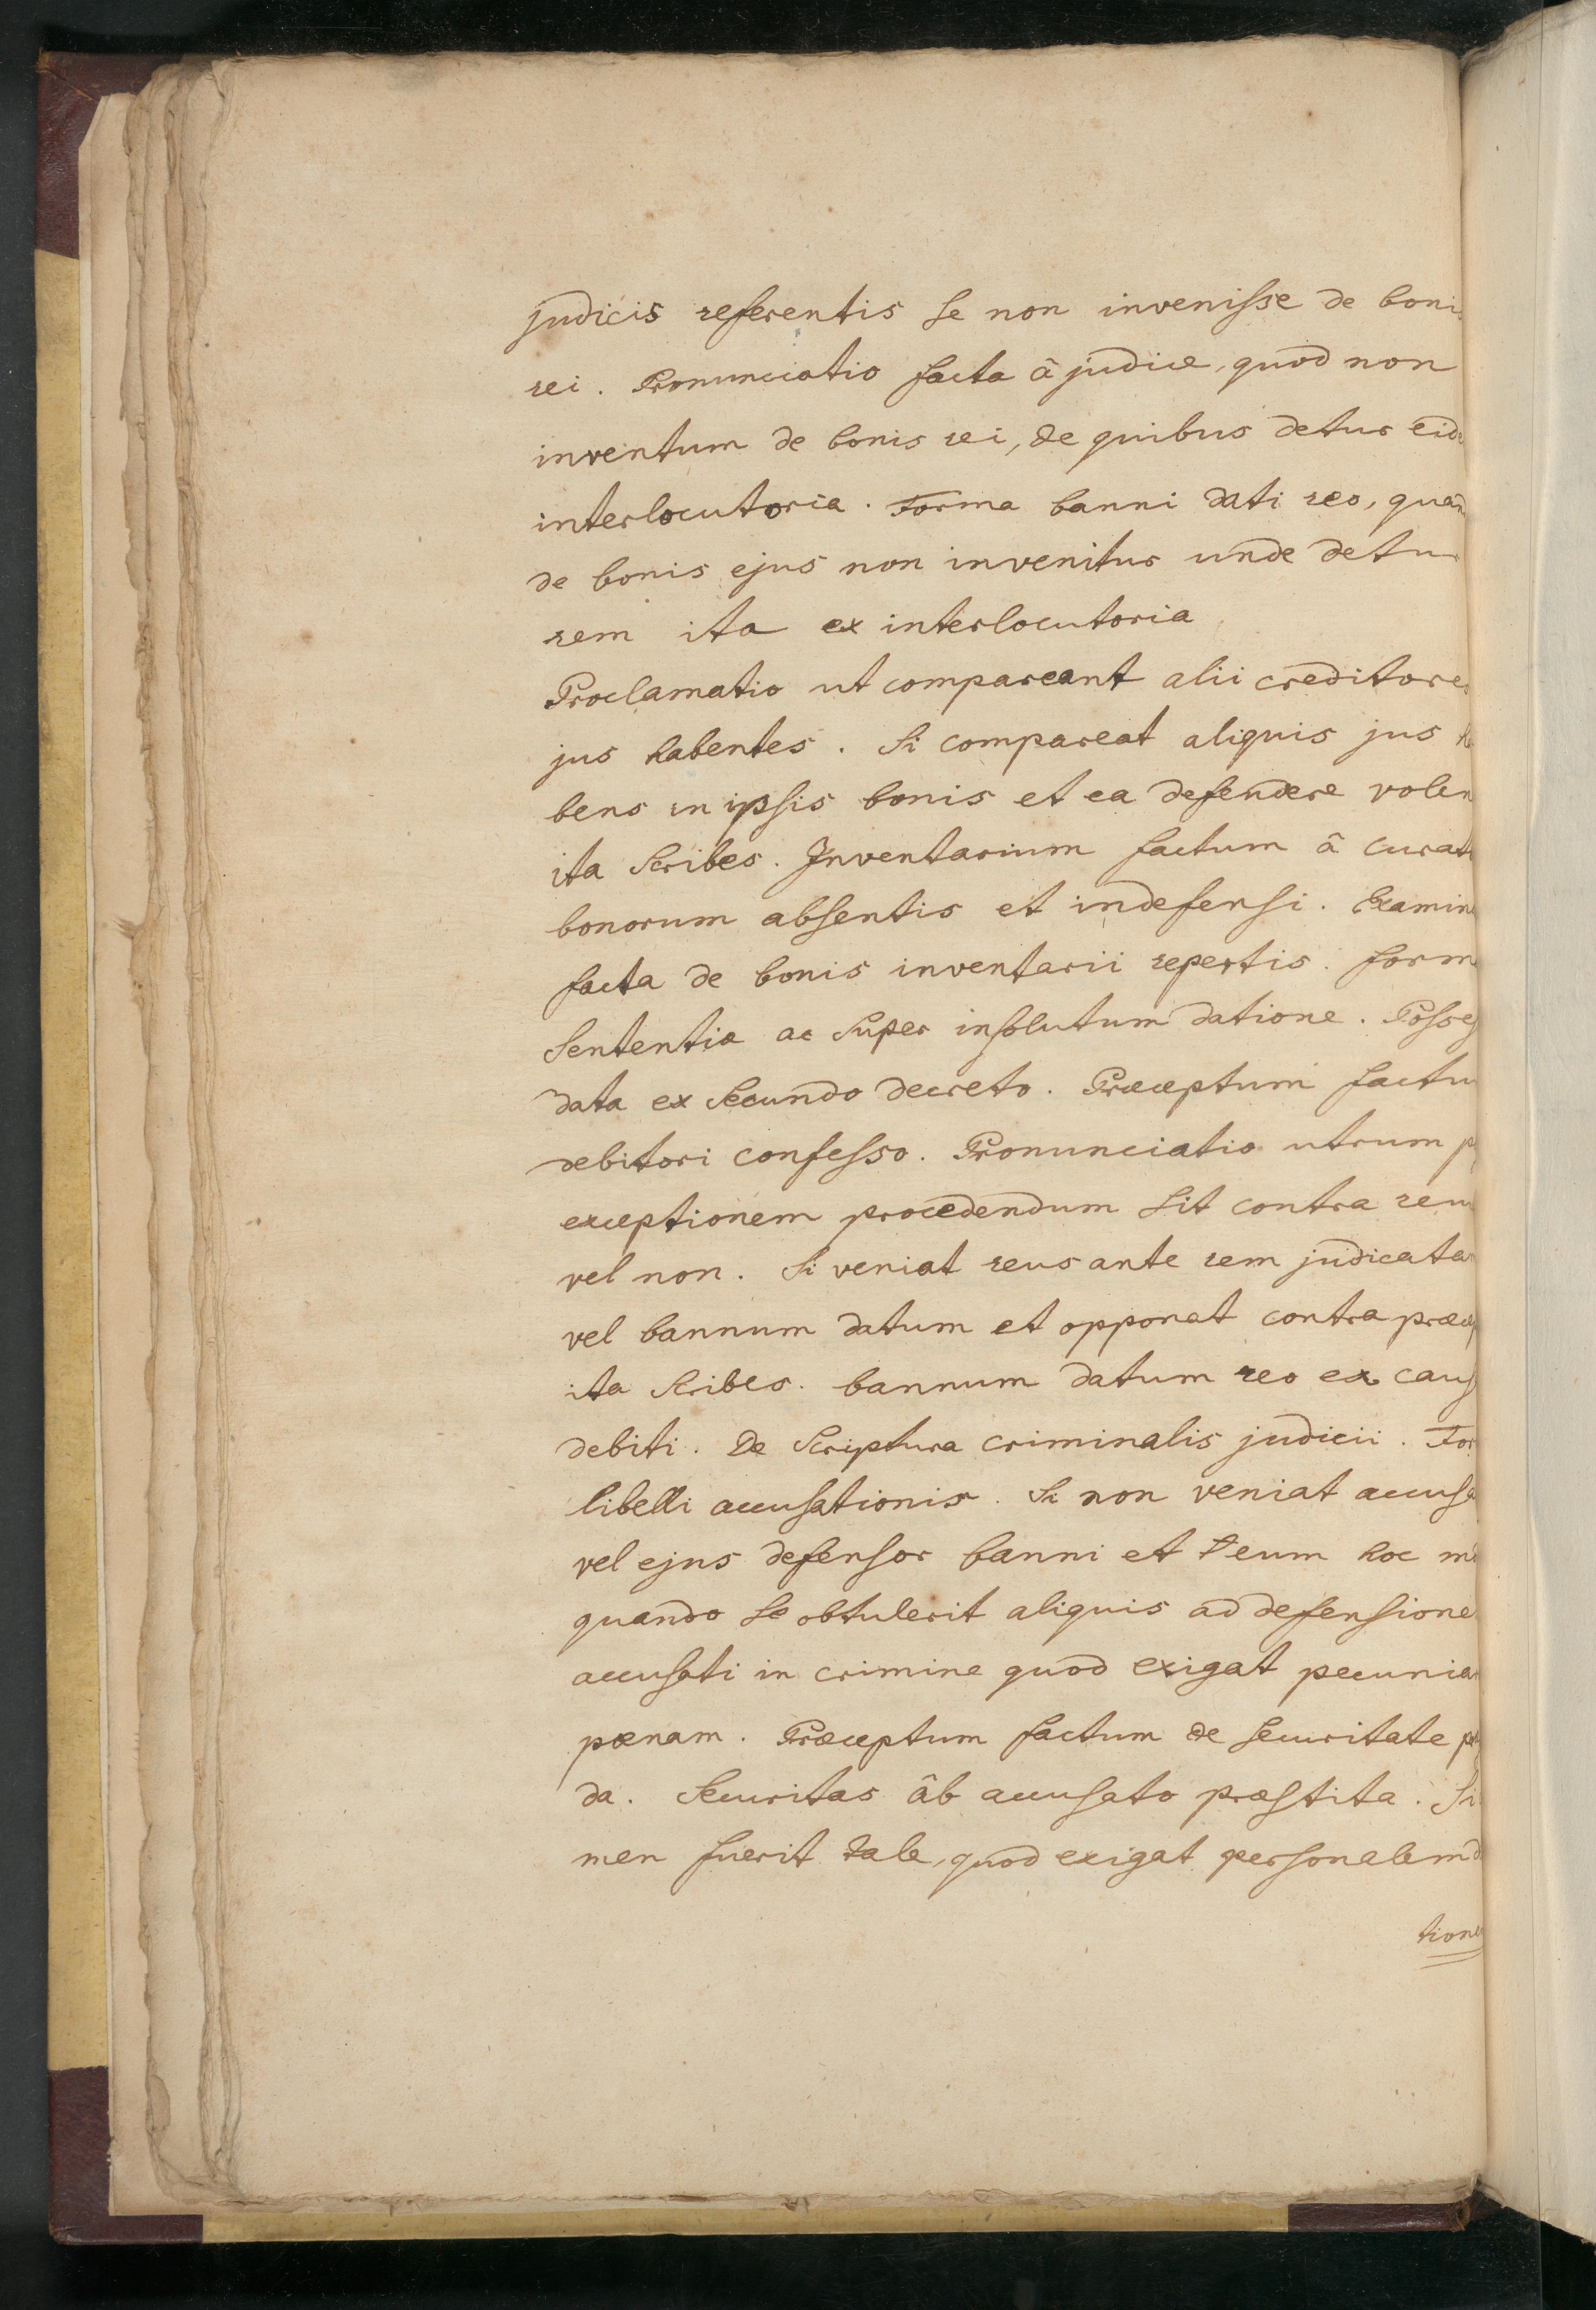 judicis referentis se non invenisse de boni
rei. Pronunciatio facta â judice, quod non
inventum de bonis rei, de quibus detur eid
interlocutoria. Forma banni dati reo, quan
de bonis ejus non invenitur unde detur
rem ita ex interlocutoria
Proclamatio ut compareant alii creditores
jus habentes. Si compareat aliquis jus
bens in ipsis bonis et ea defendere volen
ita scribes. Inventarium factum â curat
bonorum absentis et indefensi. Examin
facta de bonis inventarii repertis. form
Sententia ac super insolutum datione. Posses
data ex secundo decreto. Præceptum factu
debitori confesso. Pronunciatio utrum p
exceptionem procedendum sit contra reu
vel non. Si veniat reus ante rem judicata
vel bannum datum et opponat contra præcep
ita scribes. bannum datum reo ex caus
debiti. De Scriptura criminalis judicii. For
libelli accusationis. Si non veniat accusa
vel ejus defensor banni et eum hoc
quando se obtulerit aliquis ad defensione
accusati in crimine quod exigat pecunia
pœnam. Præceptum factum de securitate
da. Securitas âb accusato præstita. Si
men fuerit tale, quod exigat personalem
tione